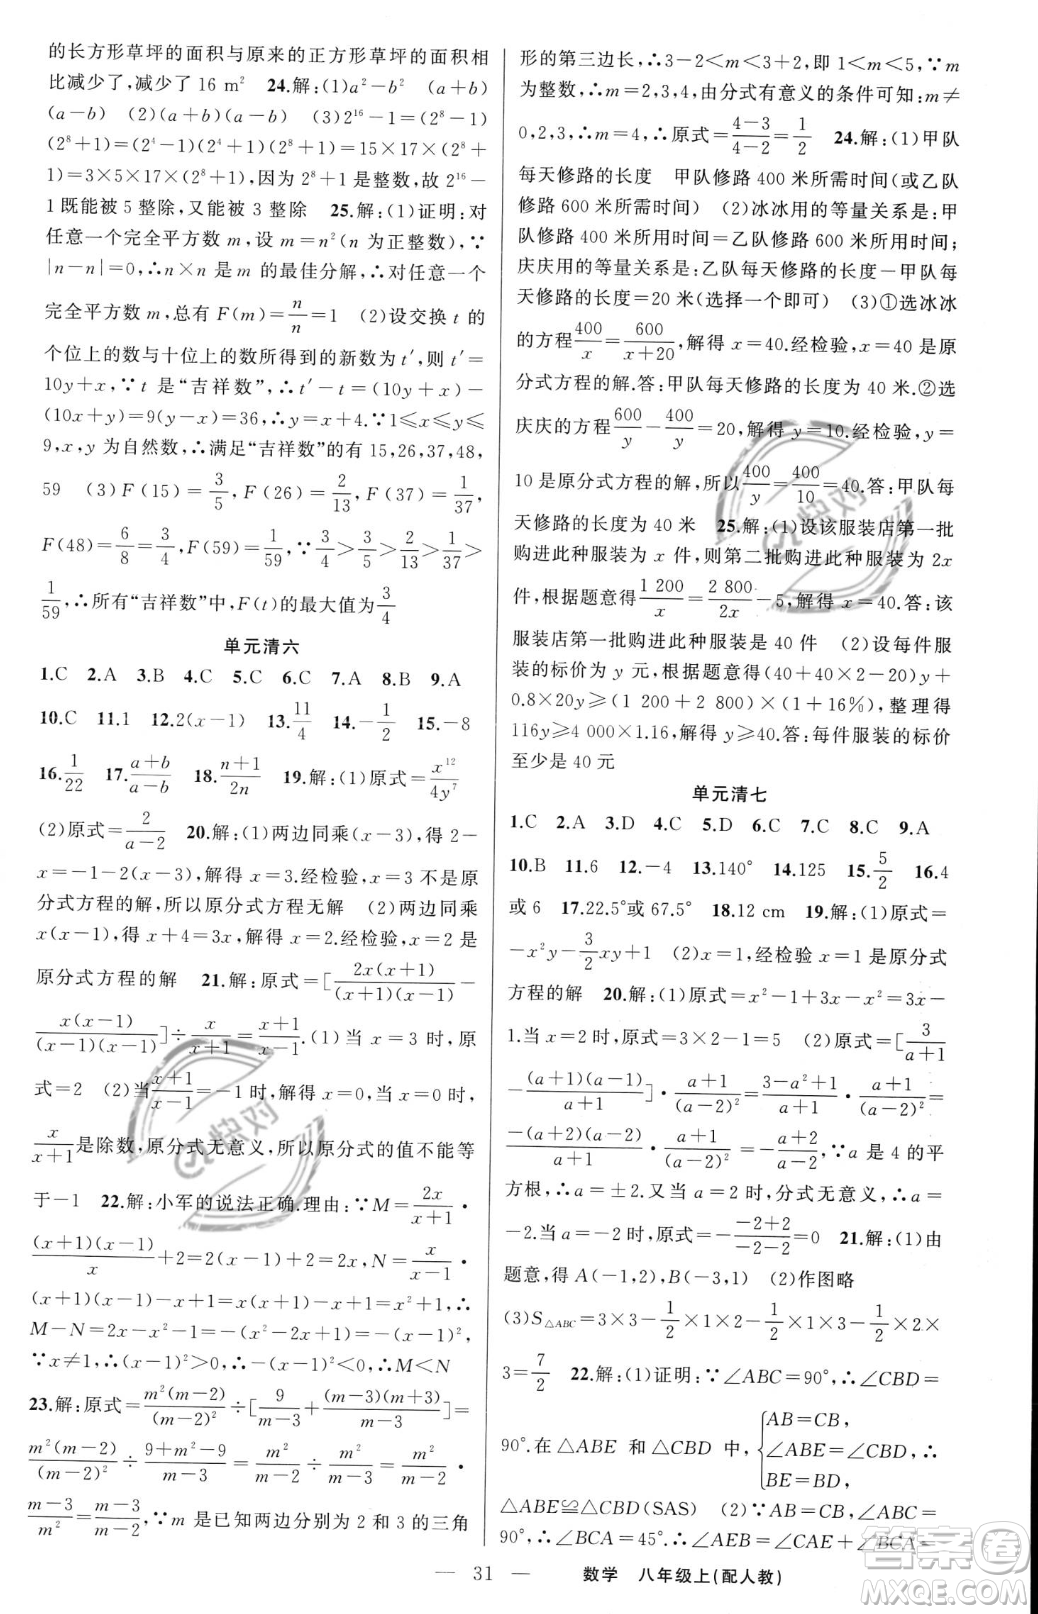 的长方形草坪的面积与原来的正方形草坪的面积相
比减少了,减少了 16 m² 24.解:(1)a²-b² (a+b)
(a-b) (2)(a+b)(a-b) (3)2¹⁶-1=(2⁸-1)
(2⁸+1)=(2⁴-1)(2⁴+1)(2⁸+1)=15×17×(2⁸+
1)=3×5×17×(2⁸+1),因为 2⁸+1 是整数,故 2¹⁶-
1 既能被 5 整除,又能被 3 整除 25.解:(1)证明:对
任意一个完全平方数 m,设 m=n²(n 为正整数),∵
|n-n|=0,∴n×n 是 m 的最佳分解,∴对任意一个
完全平方数 m,总有 F(m)=n/n=1 (2)设交换 t 的
个位上的数与十位上的数所得到的新数为 t′,则 t′=
10y+x,∵t 是“吉祥数”,∴t′-t=(10y+x)-
(10x+y)=9(y-x)=36,∴y=x+4.∵1≤x≤y≤
9,x,y 为自然数,∴满足“吉祥数”的有 15,26,37,48,
59 (3)F(15)=3/5,F(26)=2/13,F(37)=1/37,
F(48)=6/8=3/4,F(59)=1/59,∵3/4>3/5>2/13>1/37>
1/59,∴所有“吉祥数”中,F(t)的最大值为3/4
单元清六
1.C 2.A 3.B 4.C 5.C 6.B 7.A 8.B 9.A
10.C 11.1 12.2(x-1) 13.11/4 14.-1/2 15.-8
16.1/22 17.(a+b)/(a-b) 18.(n+1)/2n 19.解:(1)原式=x¹²/4y⁷
(2)原式=2/(a-2) 20.解:(1)两边同乘(x-3),得 2-
x=-1-2(x-3),解得 x=3.经检验,x=3 不是原
分式方程的解,所以原分式方程无解 (2)两边同乘
x(x-1),得 x+4=3x,解得 x=2.经检验,x=2 是
原分式方程的解 21.解:原式=[2x(x+1)/(x+1)(x-1)-
x(x-1)/(x-1)(x+1)]÷x/(x+1)=(x+1)/(x-1).(1)当 x=3 时,原
式=2 (2)当(x+1)/(x-1)=-1 时,解得 x=0,当 x=0 时,
x/(x+1)是除数,原分式无意义,所以原分式的值不能等
于-1 22.解:小军的说法正确.理由:∵M=2x/(x+1)·
(x+1)(x-1)/x+2=2(x-1)+2=2x,N=x/(x-1)·
(x+1)(x-1)-x+1=x(x+1)-x+1=x²+1,∴
M-N=2x-x²-1=-(x²-2x+1)=-(x-1)²,
∵x≠1,∴(x-1)²>0,∴-(x-1)²<0,∴M<N
23.解:原式=m²(m-2)/(m-2)²÷[9/(m-3)+(m-3)(m+3)/(m-3)]=
m²(m-2)/(m-2)²÷(9+m²-9)/(m-3)=m²/(m-2)÷m²/(m-3)=m²/(m-2)·
(m-3)/m²=(m-3)/(m-2).∵m 是已知两边分别为 2 和 3 的三角
形的第三边长,∴3-2<m<3+2,即 1<m<5,∵m
为整数,∴m=2,3,4,由分式有意义的条件可知:m≠
0,2,3,∴m=4,∴原式=(4-3)/(4-2)=1/2 24.解:(1)甲队
每天修路的长度 甲队修路 400 米所需时间(或乙队
修路 600 米所需时间) (2)冰冰用的等量关系是:甲
队修路 400 米所用时间=乙队修路 600 米所用时间;
庆庆用的等量关系是:乙队每天修路的长度-甲队每
天修路的长度=20 米(选择一个即可) (3)①选冰冰
的方程400/x=600/(x+20),解得 x=40.经检验,x=40 是原
分式方程的解.答:甲队每天修路的长度为 40 米.②选
庆庆的方程600/y-400/y=20,解得 y=10.经检验,y=
10 是原分式方程的解,所以400/y=400/10=40.答:甲队每
天修路的长度为 40 米 25.解:(1)设该服装店第一批
购进此种服装为 x 件,则第二批购进此种服装为 2x
件,根据题意得1 200/x=2 800/2x-5,解得 x=40.答:该
服装店第一批购进此种服装是 40 件 (2)设每件服
装的标价为 y 元,根据题意得(40+40×2-20)y+
0.8×20y≥(1 200+2 800)×(1+16%),整理得
116y≥4 000×1.16,解得 y≥40.答:每件服装的标价
至少是 40 元
单元清七
1.C 2.A 3.D 4.C 5.D 6.C 7.C 8.C 9.A
10.B 11.6 12.-4 13.140° 14.125 15.5/2 16.4
或 6 17.22.5°或 67.5° 18.12 cm 19.解:(1)原式=
-x²y-3/2xy+1 (2)x=1,经检验 x=1 是原分式
方程的解 20.解:(1)原式=x²-1+3x-x²=3x-
1.当 x=2 时,原式=3×2-1=5 (2)原式=[3/(a+1)
-(a+1)(a-1)/(a+1)]·(a+1)/(a-2)²=(3-a²+1)/(a+1)·(a+1)/(a-2)²=
-(a+2)(a-2)/(a+1)·(a+1)/(a-2)²=-(a+2)/(a-2),∵a 是 4 的平
方根,∴a=±2.又当 a=2 时,分式无意义,∴a=
-2.当 a=-2 时,原式=-(-2+2)/(-2-2)=0 21.解:(1)由
题意,得 A(-1,2),B(-3,1) (2)作图略
(3)S△ABC=3×3-1/2×1×2-1/2×1×3-1/2×2×
3=7/2 22.解:(1)证明:∵∠ABC=90°,∴∠CBD=
90°.在△ABE 和△CBD 中,{AB=CB, ∠ABC=∠CBD, BE=BD, ∴
△ABE≌△CBD(SAS) (2)∵AB=CB,∠ABC=
90°,∴∠BCA=45°,∴∠AEB=∠CAE+∠BCA=
— 31 — 数学 八年级上(配人教)
快对
快对
答案圈